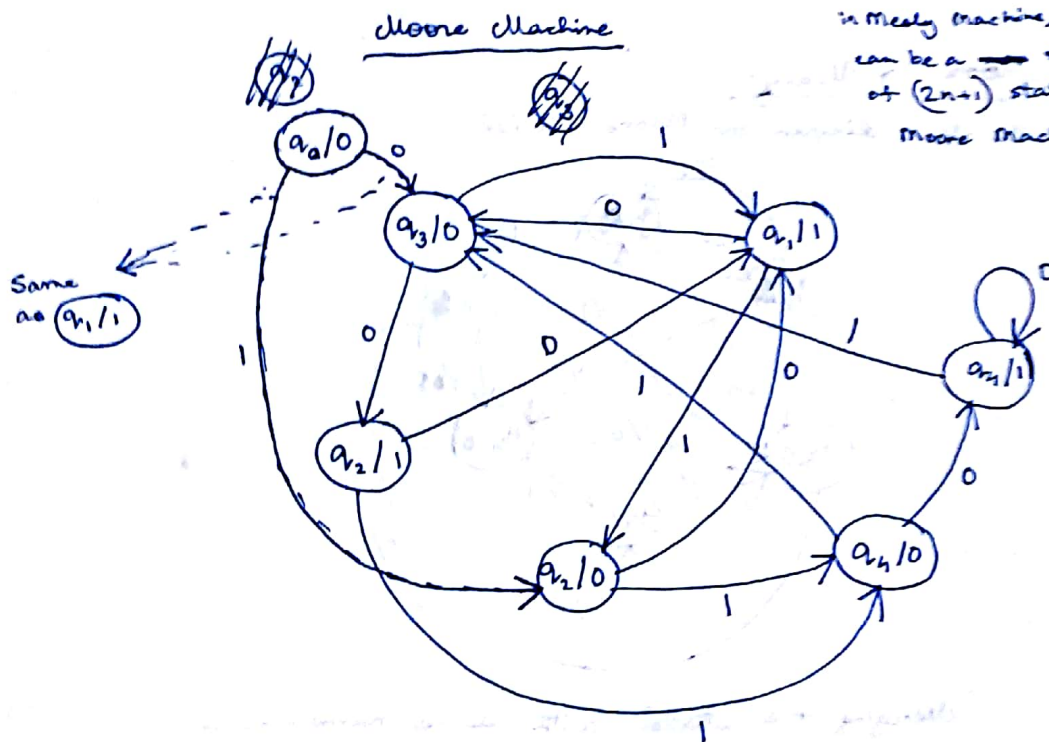 Moore Machine
in Mealy Machine,
can be a
of (2n+1)
Moore
q0/0
0
1
q3/0
0
q1/1
Same
as q1/1
0
0
1
q4/1
0
1
1
1
q2/1
1
0
0
q2/0
1
q4/0
1